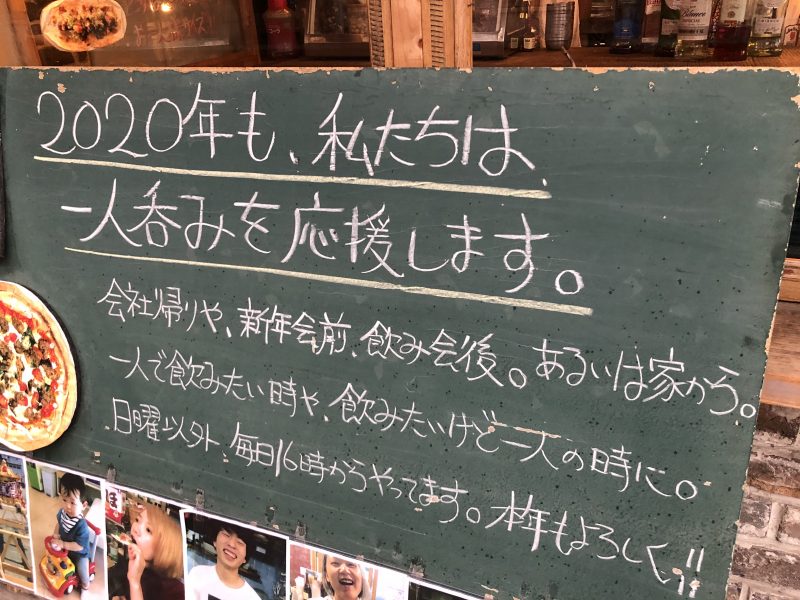 2020年も、私たちは、
一人呑みを応援します。
会社帰りや、新年会前、飲み会後。あるいは家から。
一人で飲みたい時や、飲みたいけど一人の時に。
日曜以外、毎日16時からやってます。本年もよろしく!!